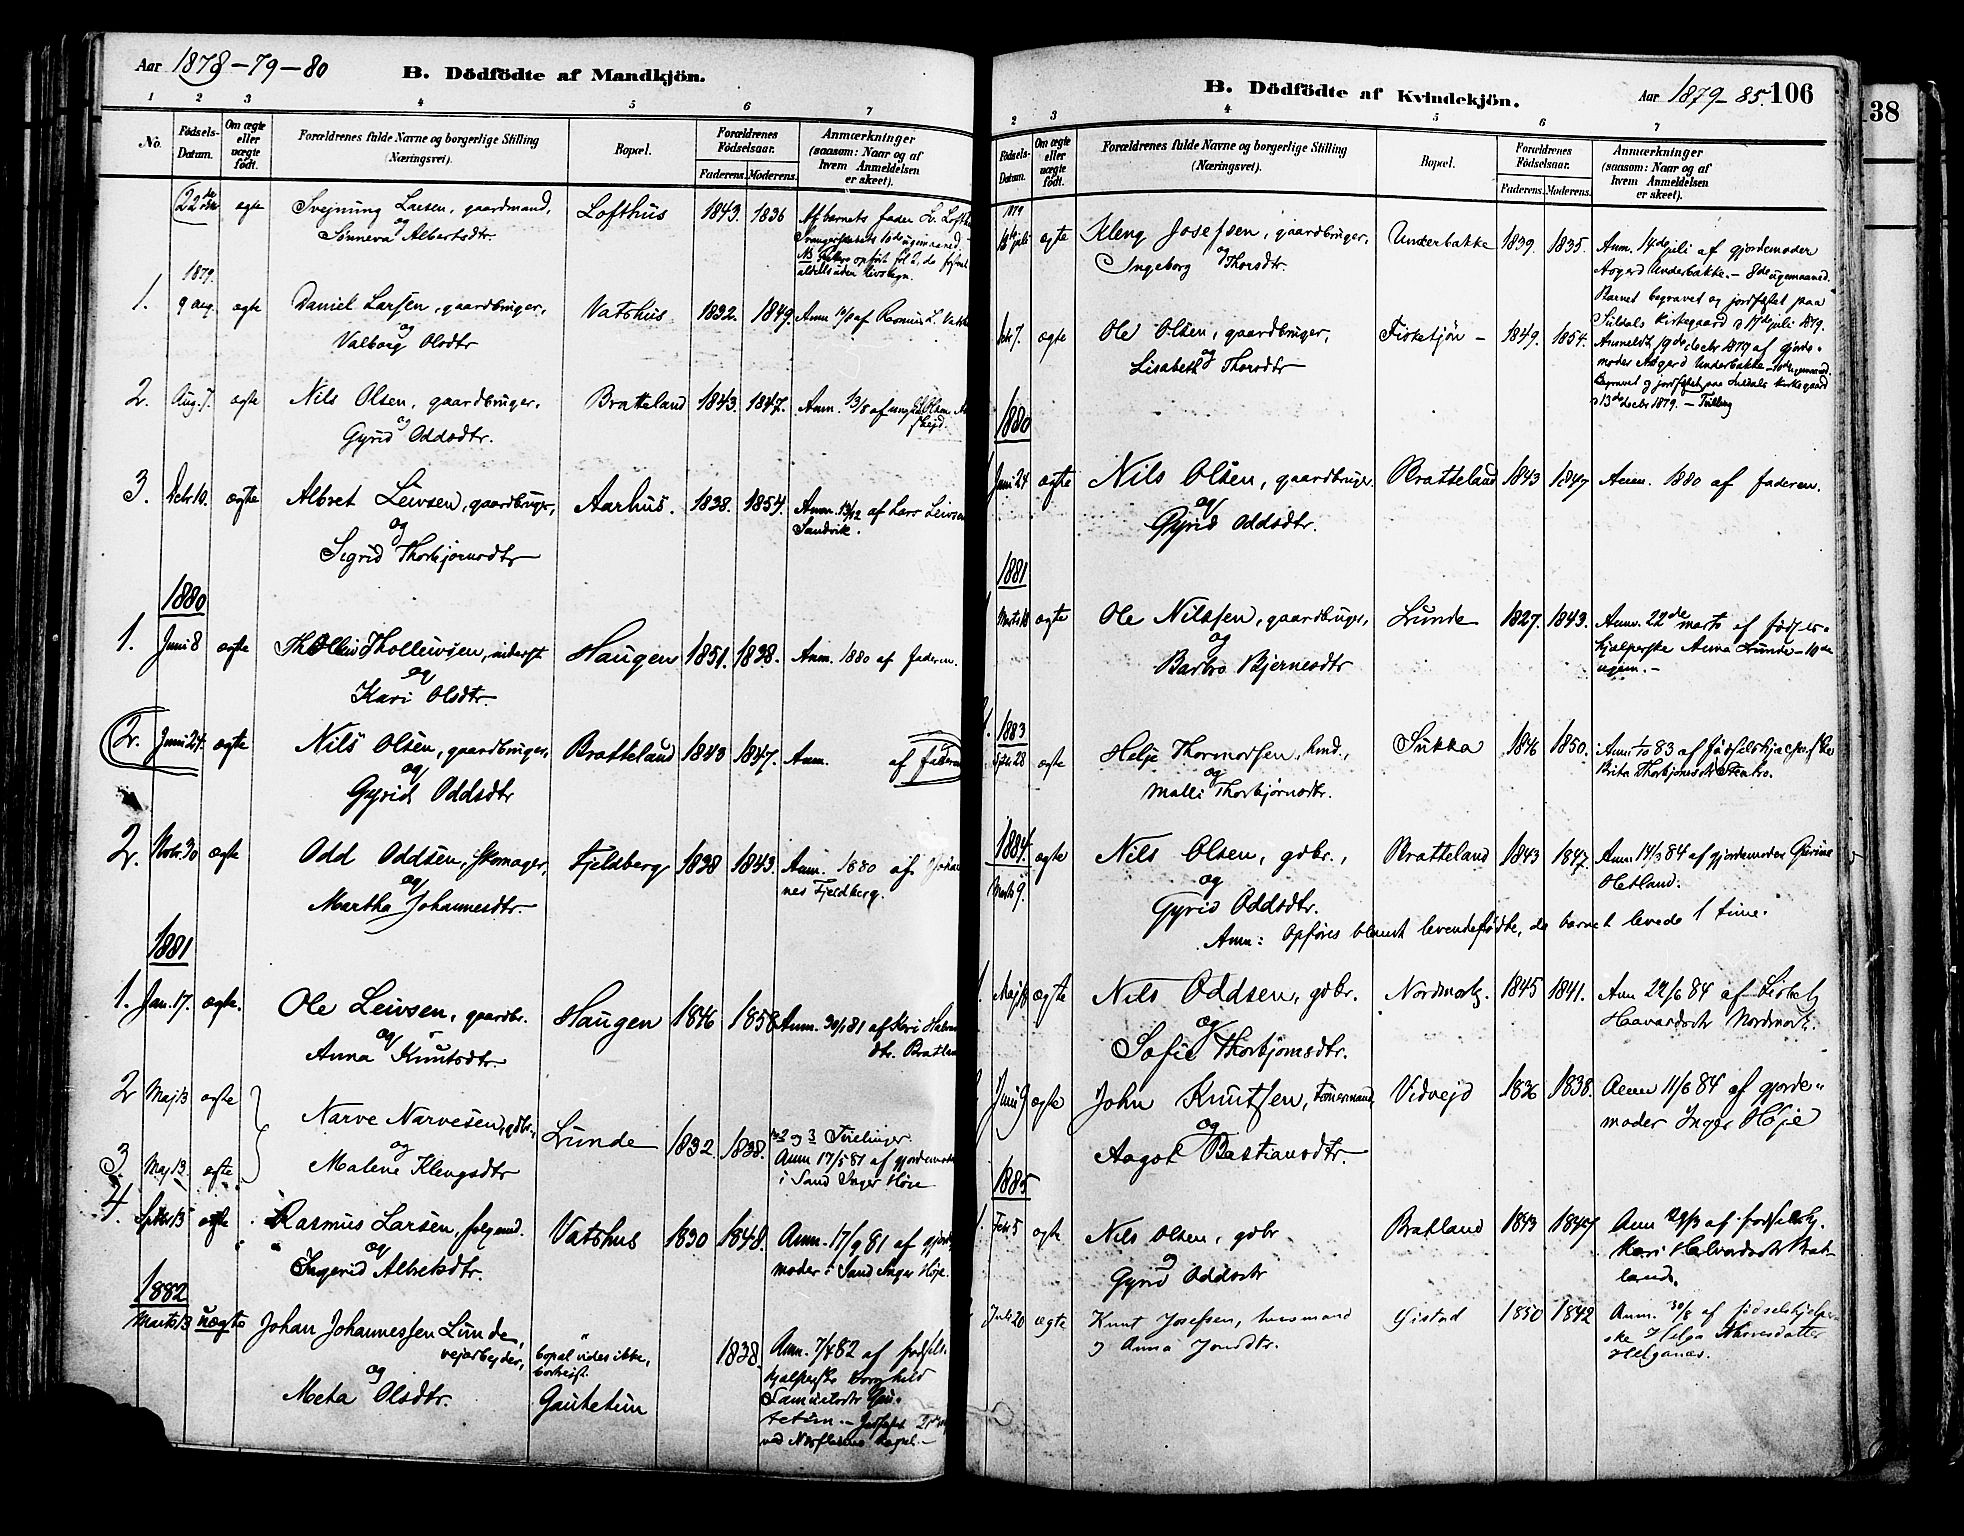 Aar 1878-79-80
B. Dödfödte af Mandkjön.
1 2 3 4 5 6 7
No.
Födsels-Datum.
Om ægte eller uægte födt.
Forældrenes fulde Navne og borgerlige Stilling (Næringsvei).
Bopæl.
Forældrenes Födselsaar.
Faderens. Moderens.
Anmærkninger (saasom: Naar og af hvem Anmeldelsen er skeet).
ægte Svejnung Larsen, gaardmand, Lofthus 1843. 1836 Af barnets fader
og
Sønneva Albertsdtr.
1879.
1. 9 aug. ægte Daniel Larsen, gaardbruger, Vatshus 1832. 1849. Anm. af Rasmus L.
og
Valborg Olsdtr
2. Aug. 7. ægte Nils Olsen, gaardbruger, Bratteland 1843. 1847. Anm. 13/8 af
og
Gyrid Oddsdtr.
3. Dcbr. 10. ægte Albret Leivsen, gaardbruger, Aarhus. 1838. 1854. Anm. 13/12 af Lars Leivsen
og Sandvik.
Sigrid Thorbjørnsdtr
1880
1. Juni 8 ægte Thollevsen, inderst Haugen 1851. 1838. Anm. 1880 af faderen.
og
Kari Olsdtr.
2. Juni 24. ægte Nils Olsen, gaardbruger, Bratteland 1843 1847. Anm. af faderen
og
Gyrid Oddsdtr
2. Nvbr. 30 ægte Odd Oddsen, skomager, Fjeldberg 1838 1843. Anm. 1880 af
og nes Fjeldberg.
Martha Johannesdtr.
1881
1. Jan. 17. ægte. Ole Leivsen, gaardbr. Haugen 1846 1858 Anm. 30/1 81 af Kari
og dtr. Bratland
Anna Knutsdtr.
2 Maj 13 ægte Narve Narvesen, gdbr., Lunde 1832. 1838. No 2 og 3 Tvillinger.
og Anm 17/5 81 af gjordemoder
3. Maj 13. ægte Malene Klengsdtr i Sand Inger Høie
4. Septbr 13 ægte Rasmus Larsen, Vatshus 1830 1848. Anm. 17/9 81 af gjorde
og moder i Sand Inger Høje.
Ingerid Albretsdtr.
1882
Marts 13 uægte Johan Johannessen Lunde, 1838. Anm. 7/4 82 af fødsels
vejarbejder, bopæl vides ikke, hjælperske Borghild
og bortrejst.
Meta Olsdtr. Gautetun
B. Dödfödte af Kvindekjön.
Aar 1879-85. 106
2 3 4 5 6 7
Födsels-Datum.
Om ægte eller uægte födt.
Forældrenes fulde Navne og borgerlige Stilling (Næringsvei).
Bopæl.
Forældrenes Födselsaar.
Faderens. Moderens.
Anmærkninger (saasom: Naar og af hvem Anmeldelsen er skeet).
1879
juli ægte Kleng Josefsen, gaardbruger, Underbakke 1839. 1835. Anm. 14de juli af gjordemoder
og Asgerd Underbakke. - 8de ugemaaned.
Ingeborg Thorsdtr. Barnet begravet og jordfæstet paa
Suldals Kirkegaard 17de juli 1879.
Dcbr 7. ægte Ole Olsen, gaardbruger, Fisketjøn - 1849. 1854. Anmeldt 19de decbr 1879 af gjorde-
og moder Asgerd Underbakke
Lisabeth Thorsdtr Begravet og jordfæstet paa Suldals Kirkegaard
13de decbr 1879.
1880
Juni 24 ægte Nils Olsen, gaardbruger Bratteland 1843 1847 Anm. 1880 af faderen.
og
Gyrid Oddsdtr.
1881
Marts 18 ægte Ole Nilssen, gaardbruger, Lunde 1827. 1843. Anm. 22de marts af fødsels-
og hjælperske Anna Lunde - 10de
Barbro Bjernesdtr ugem. -
1883
28 ægte Helje Thormodsen, hmd., Sukka 1846 1850. Anm. 1/10 83 af fødselshjælperske
og Brita Thorbjørnsdtr
Malli Thorbjørnsdtr.
1884.
Marts 9. ægte Nils Olsen, gdbr., Bratteland 1843 1847. Anm. 14/3 84 af gjordemoder Gurine
og Hetland.
Gyrid Oddsdtr.
Anm: Opføres blandt levendefødte, da barnet levede 1 time.
Maj ægte Nils Oddsen, gdbr. Nordmork. 1845 1841. Anm 22/6 84 af
og Haavardsdtr Nordmork.
Sofie Thorbjørnsdtr.
Juni 9 ægte John Knutsen, tømermand, Vidvejd 1836 1838. Anm 11/6 84 af gjorde-
og moder Inger Høje
Aagot Bastiansdtr.
1885
1. Febr 5 ægte Nils Olsen, gdbr Bratland 1843 1847 Anm af fødselshj.
og Kari Halvardsdtr Brat-
Gyrid Oddsdtr land.
Juli 20 ægte Knut Josefsen, husmand Gistad 1850 1842 Anm. 30/8 af fødselshjelper-
og Anna Jonsdtr. ske Helga Thoresdatter
Helganæs.
138